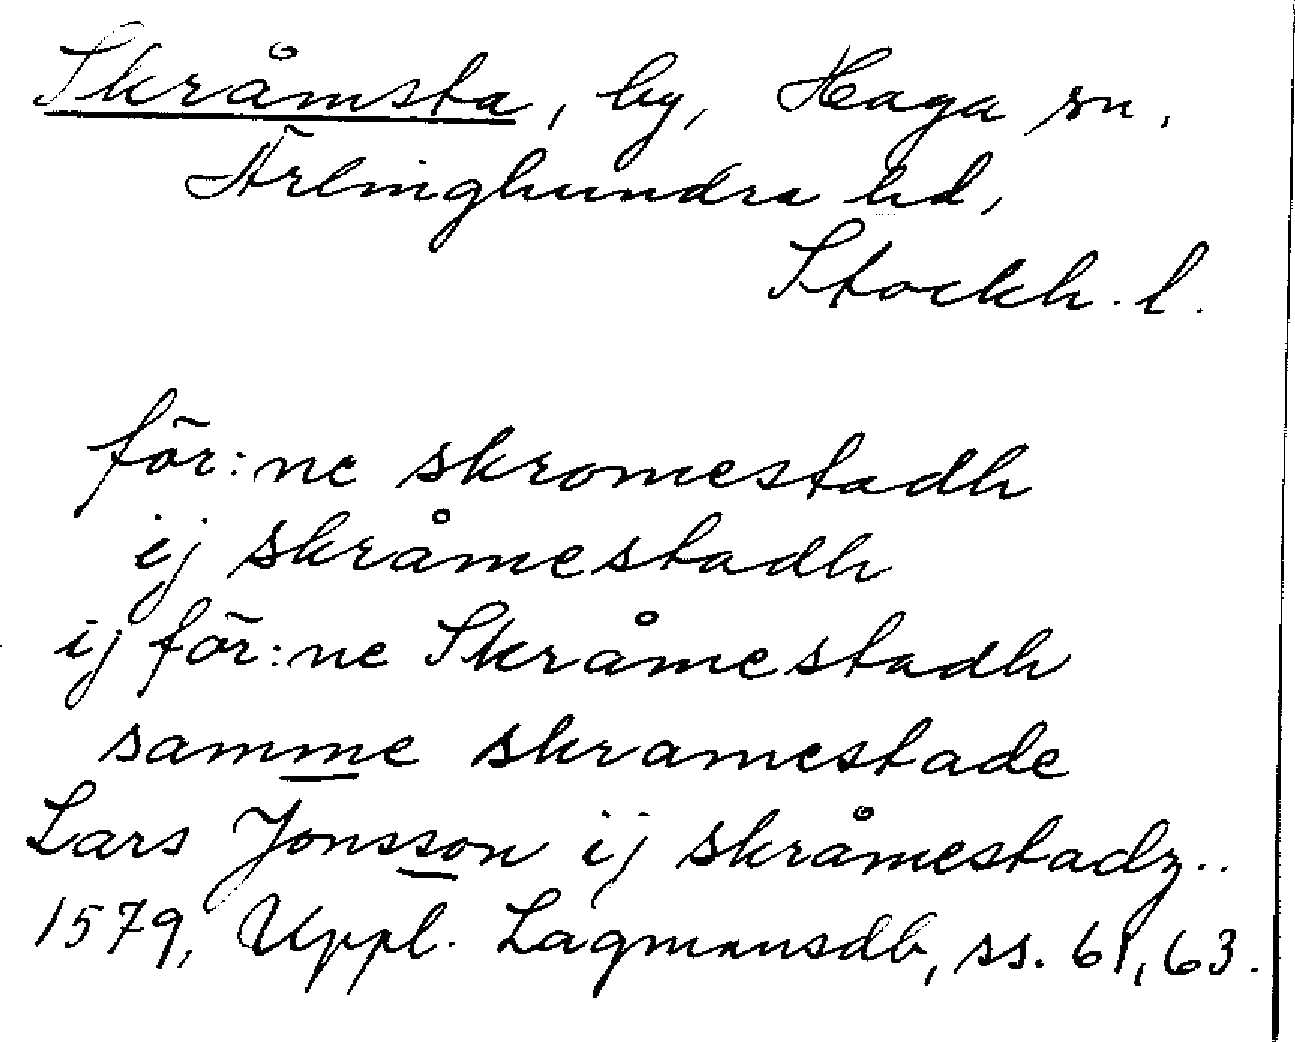 Skråmsta, by, Haga sn,
Ärlinghundra hd,
Stockh. l.
för:ne skromestadh
ij skråmestadh
ij för:ne Skråmestadh
samme skramestade
Lars Jonsson ij skråmestadz..
1579, Uppl. Lagmansdb, ss. 61, 63.